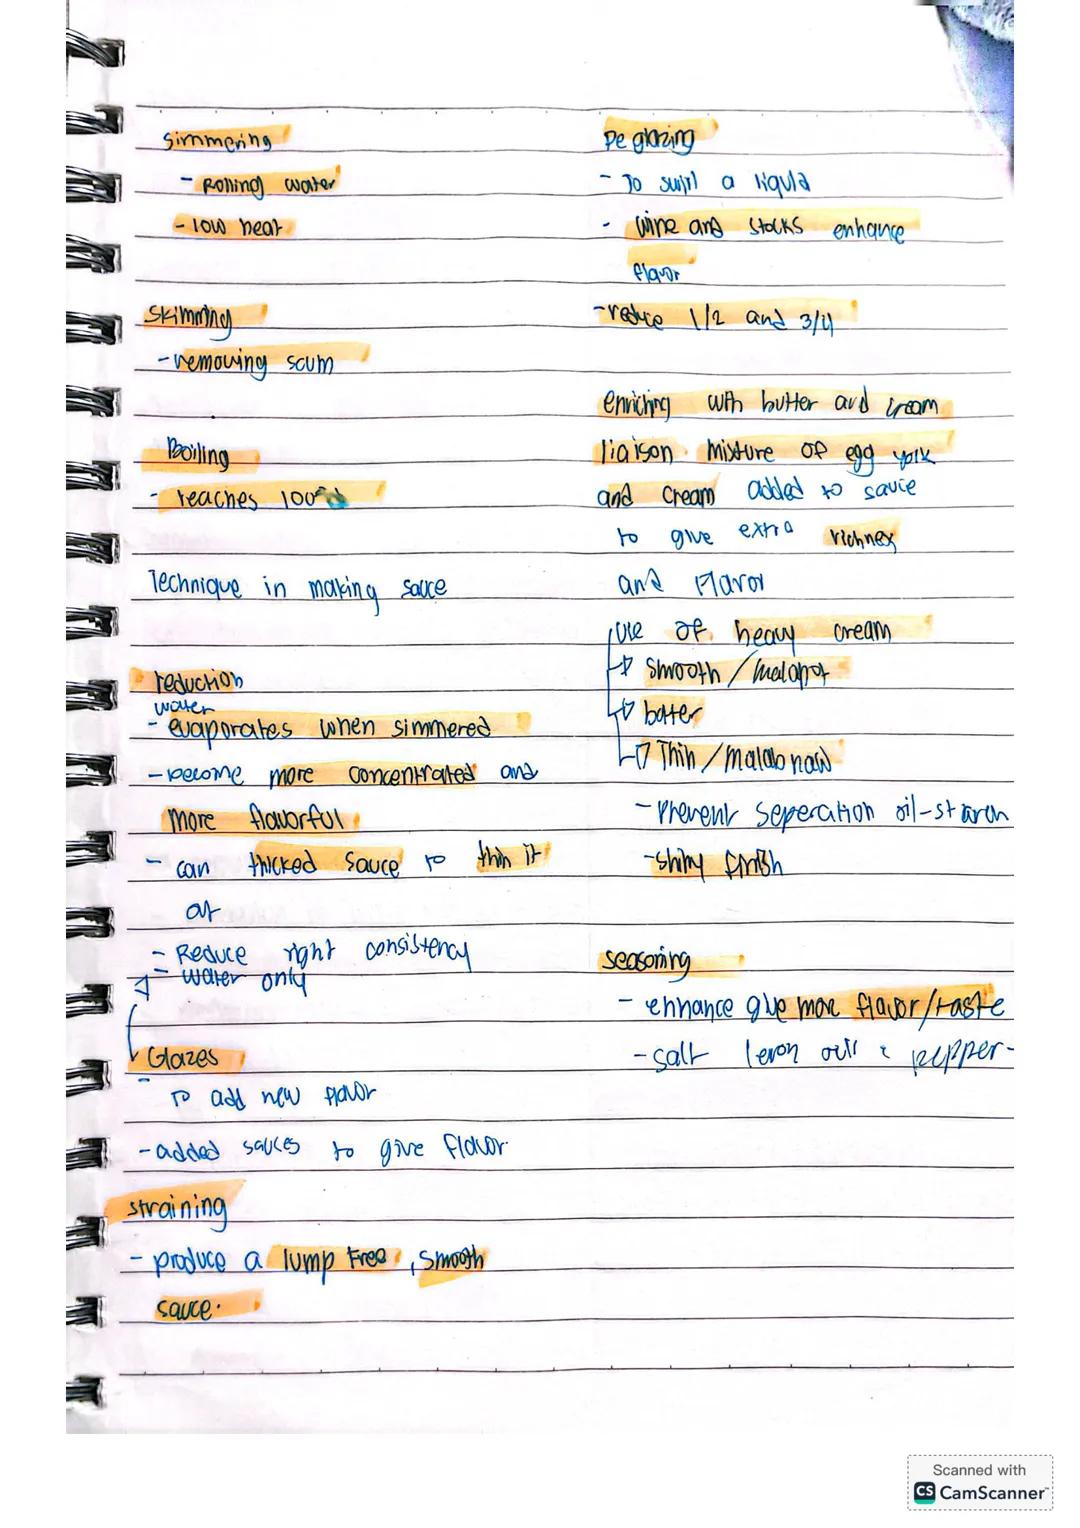 simmering
- Rolling water
- low heat
skimming
- removing scum
Boiling
- reaches 100°
Technique in making sauce
reduction
water
- evaporates when simmered
- become more concentrated and
more flavorful
- can thicked sauce to thin it
- Reduce right consistency
- water only
Glazes
- To add new flavor
- added sauces to give flavor
straining
- produce a lump free, smooth
sauce.
Deglazing
- To swirl a liquid
- wine and stocks enhance
flavor
- reduce 1/2 and 3/4
enriching with butter and cream
liaison. mixture of egg yolk
and cream added to sauce
to give extra richness
and flavor
use of heavy cream
smooth / malapot
butter
Thin / malabnaw
- Prevent seperation oil-starch
- shiny finish
seasoning
- enhance give more flavor/taste
- salt lemon & pepper-
Scanned with
CS CamScanner